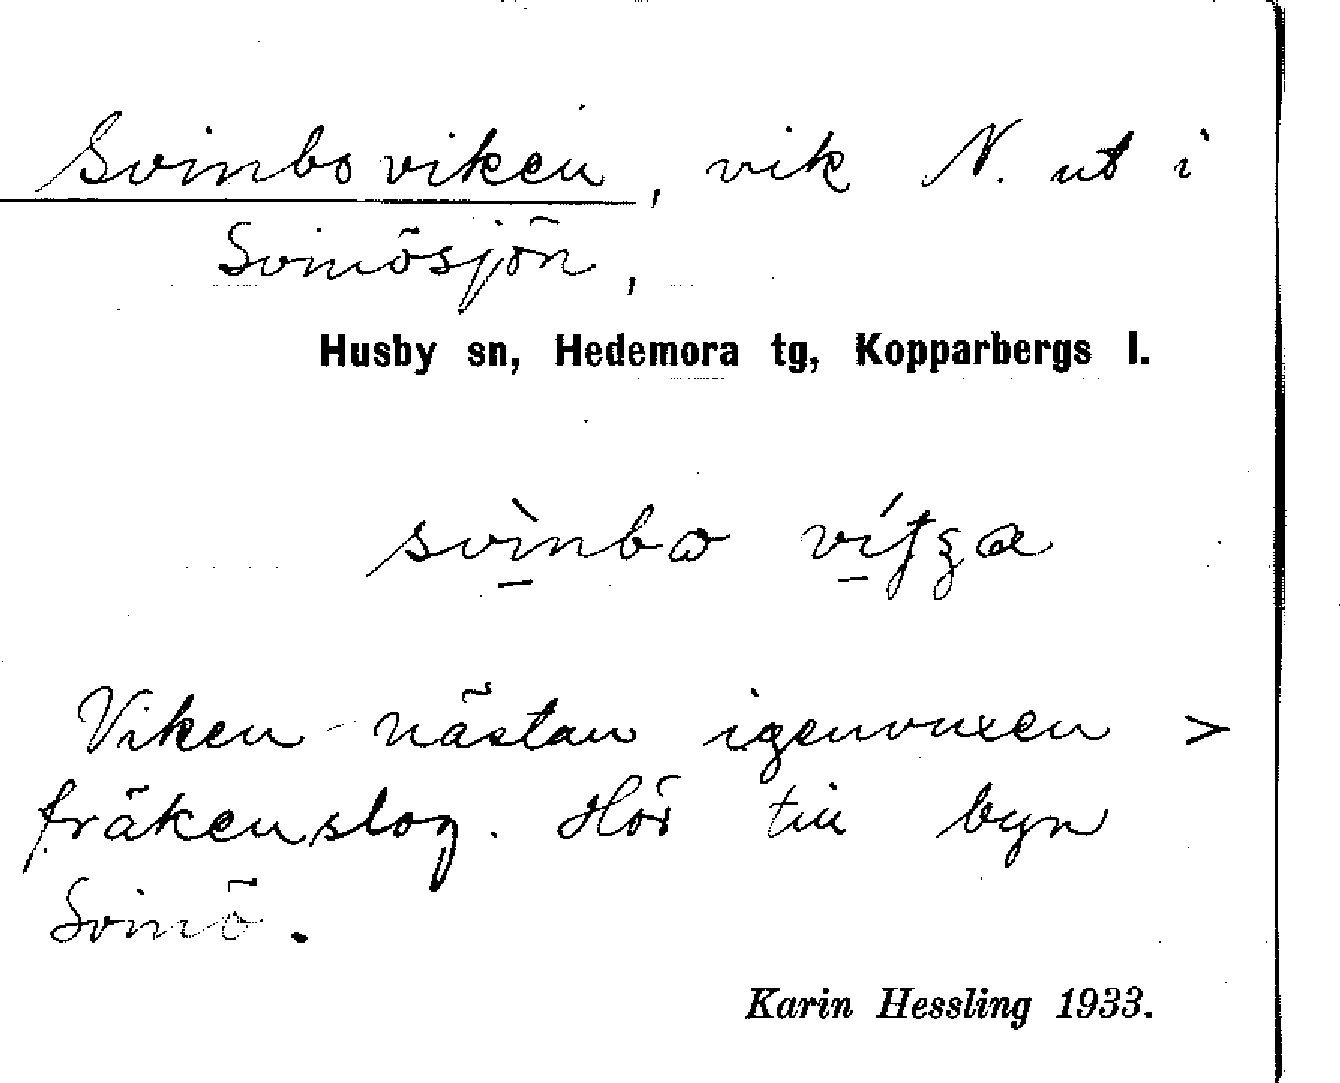 Svinboviken, vik N. ut i
Svinösjön,
Husby sn, Hedemora tg, Kopparbergs l.
svìnbω
Viken nästan igenvuxen >
fräkenslog. Hör till byn
Svinö.
Karin Hessling 1933.